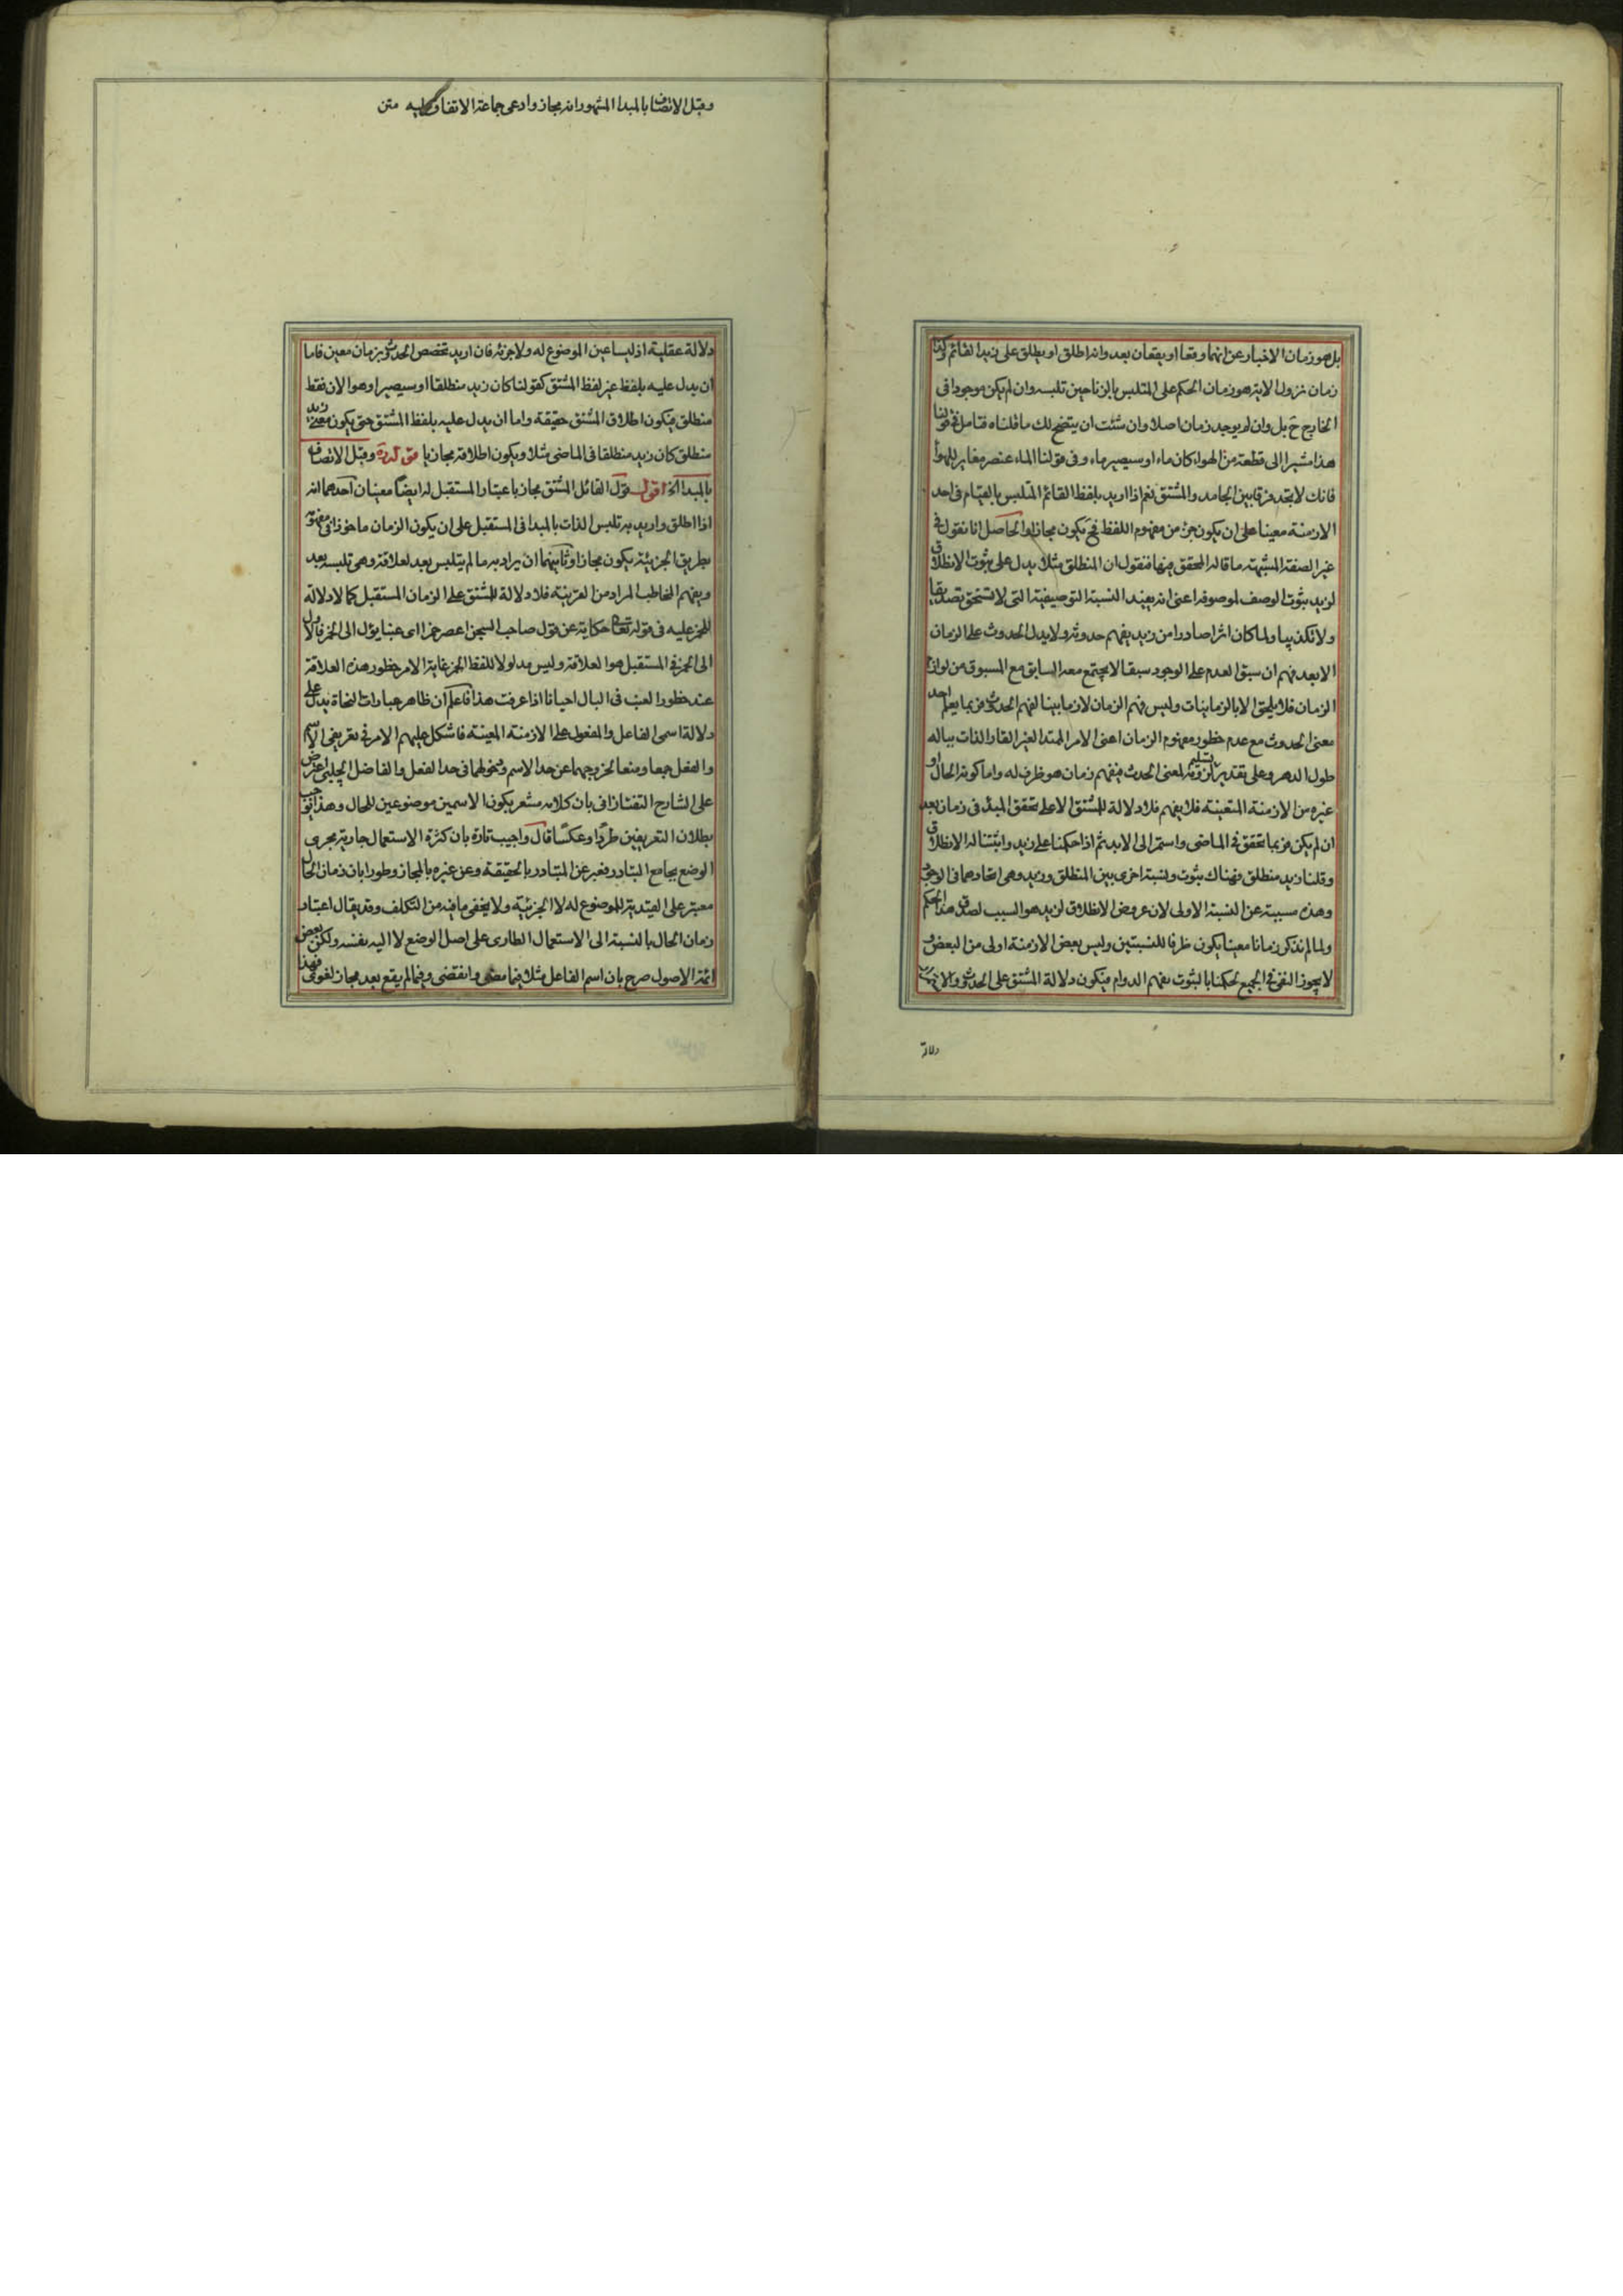 بل هو زمان الاخبار عن انهما وقعا او يقعان بعد وانه اطلق او يطلق على زيد القائم وكذا
زمان نزول الاية هو زمان الحكم على المتلبس بالزنا حين تلبسه وان لم يكن موجودا فى
الخارج ح بل وان لم يوجد زمان اصلا وان شئت ان يتضح لك ما قلناه فتامل فى قولنا
هذا مشيرا الى قطعة من الهواء كان ماء او سيصير ماء وفى قولنا الماء عنصر مغاير للهواء
فانك لا تجد فرقا بين الجامد والمشتق نعم اذا اريد بلفظ القائم المتلبس بالقيام فى احد
الازمنة معينا على ان يكون جزء من مفهوم اللفظ فح يكون مجازا والحاصل انا نقول فى
غير الصفة المشبهة ما قاله المحقق فيها فنقول ان المنطلق مثلا يدل على ثبوت الانطلاق
لزيد ثبوت الوصف لموصوفه اعنى انه يفيد النسبة التوصيفية التى لا تستحق تصديقا
ولا تكذيبا ولما كان اثرا صادرا من زيد يفهم حدوثه ولا يدل الحدوث على الزمان
الا بعد فهم ان سبق العدم على الوجود سبقا لا يجتمع معه السابق مع المسبوق من لوازم
الزمان فلا يلحق الا بالزمانيات وليس فهم الزمان لازما بينا لفهم الحدوث فربما يعلم احد
معنى الحدوث مع عدم خطور مفهوم الزمان اعنى الامر الممتد الغير القار الذات بباله
طول الدهر وعلى تقدير تسليم لزومه لمعنى الحدث فيفهم زمان هو ظرف له واما كونه الحال او
غيره من الازمنة المتعينة فلا يفهم فلا دلالة للمشتق الا على تحقق المبدء فى زمان بعد
ان لم يكن فربما تحقق فى الماضى واستمر الى الابد ثم اذا حكمنا على زيد واثبتنا له الانطلاق
وقلنا زيد منطلق فهناك ثبوت ونسبة اخرى بين المنطلق وزيد وهى اتحادهما فى الوجود
وهذه مسببة عن النسبة الاولى لان عروض الانطلاق لزيد هو السبب لصدق هذا الحكم
ولما لم نذكر زمانا معينا يكون ظرفا للنسبتين وليس بعض الازمنة اولى من البعض و
لا يجوز النفى فى الجميع لحكمنا بالثبوت يفهم الدوام فيكون دلالة المشتق على الحدوث
دلالة
وقبل الاتصاف بالمبدا المشهور انه مجاز وادعى جماعة الاتفاق عليه متن
دلالة عقلية اذ ليسا عين الموضوع له ولا جزئه فان اريد تخصص الحدوث بزمان معين فاما
ان يدل عليه بلفظ غير لفظ المشتق كقولنا كان زيد منطلقا او سيصير او هو الان فقط
منطلق فيكون اطلاق المشتق حقيقة واما ان يدل عليه بلفظ المشتق حتى يكون معنى زيد
منطلق كان زيد منطلقا فى الماضى مثلا ويكون اطلاقه مجازيا وقبل الاتصاف
بالمبدا الخ اقول قول القائل المشتق مجاز باعتبار المستقبل له ايضا معنيان احدهما انه
اذا اطلق واريد به تلبس الذات بالمبدا فى المستقبل على ان يكون الزمان ماخوذا فى مفهومه
بطريق الجزئية يكون مجازا وثانيهما ان يراد به ما لم يتلبس بعد لعلاقة وهى تلبسه بعد
ويفهم المخاطب المراد من القرينة فلا دلالة للمشتق على الزمان المستقبل كما لا دلالة
للخمر عليه فى قوله تعالى حكاية عن قول صاحب السجن اعصر خمرا اى عنبا يؤل الى الخمر فالاول
الى الخمر فى المستقبل هو العلاقة وليس مدلولا للفظ الخمر غاية الامر خطور هذه العلاقة
عند خطور العنب فى البال احيانا اذا عرفت هذا فاعلم ان ظاهر عبارات النحاة يدل على
دلالة اسمى الفاعل والمفعول على الازمنة المعينة فاشكل عليهم الامر فى تعريفى الاسم
والفعل جمعا ومنعا لخروجهما عن حد الاسم ودخولهما فى حد الفعل والفاضل الچلبى اعترض
على الشارح التفتازانى بان كلامه مشعر بكون الاسمين موضوعين للحال وهذا يوجب
بطلان التعريفين طردا وعكسا قال واجيب تارة بان كثرة الاستعمال جارية مجرى
الوضع بجامع التبادر فعبر عن المتبادر بالحقيقة وعن غيره بالمجاز وطورا بان زمان الحال
معتبر على القيدية للموضوع له لا الجزئية ولا يخفى ما فيه من التكلف وقد يقال اعتبار
زمان الحال بالنسبة الى الاستعمال الطارى على اصل الوضع لا اليه بنفسه ولكن بعض
ائمة الاصول صرح بان اسم الفاعل مثلا فيما مضى وانقضى وفيما لم يقع بعد مجاز لغوى فهذا